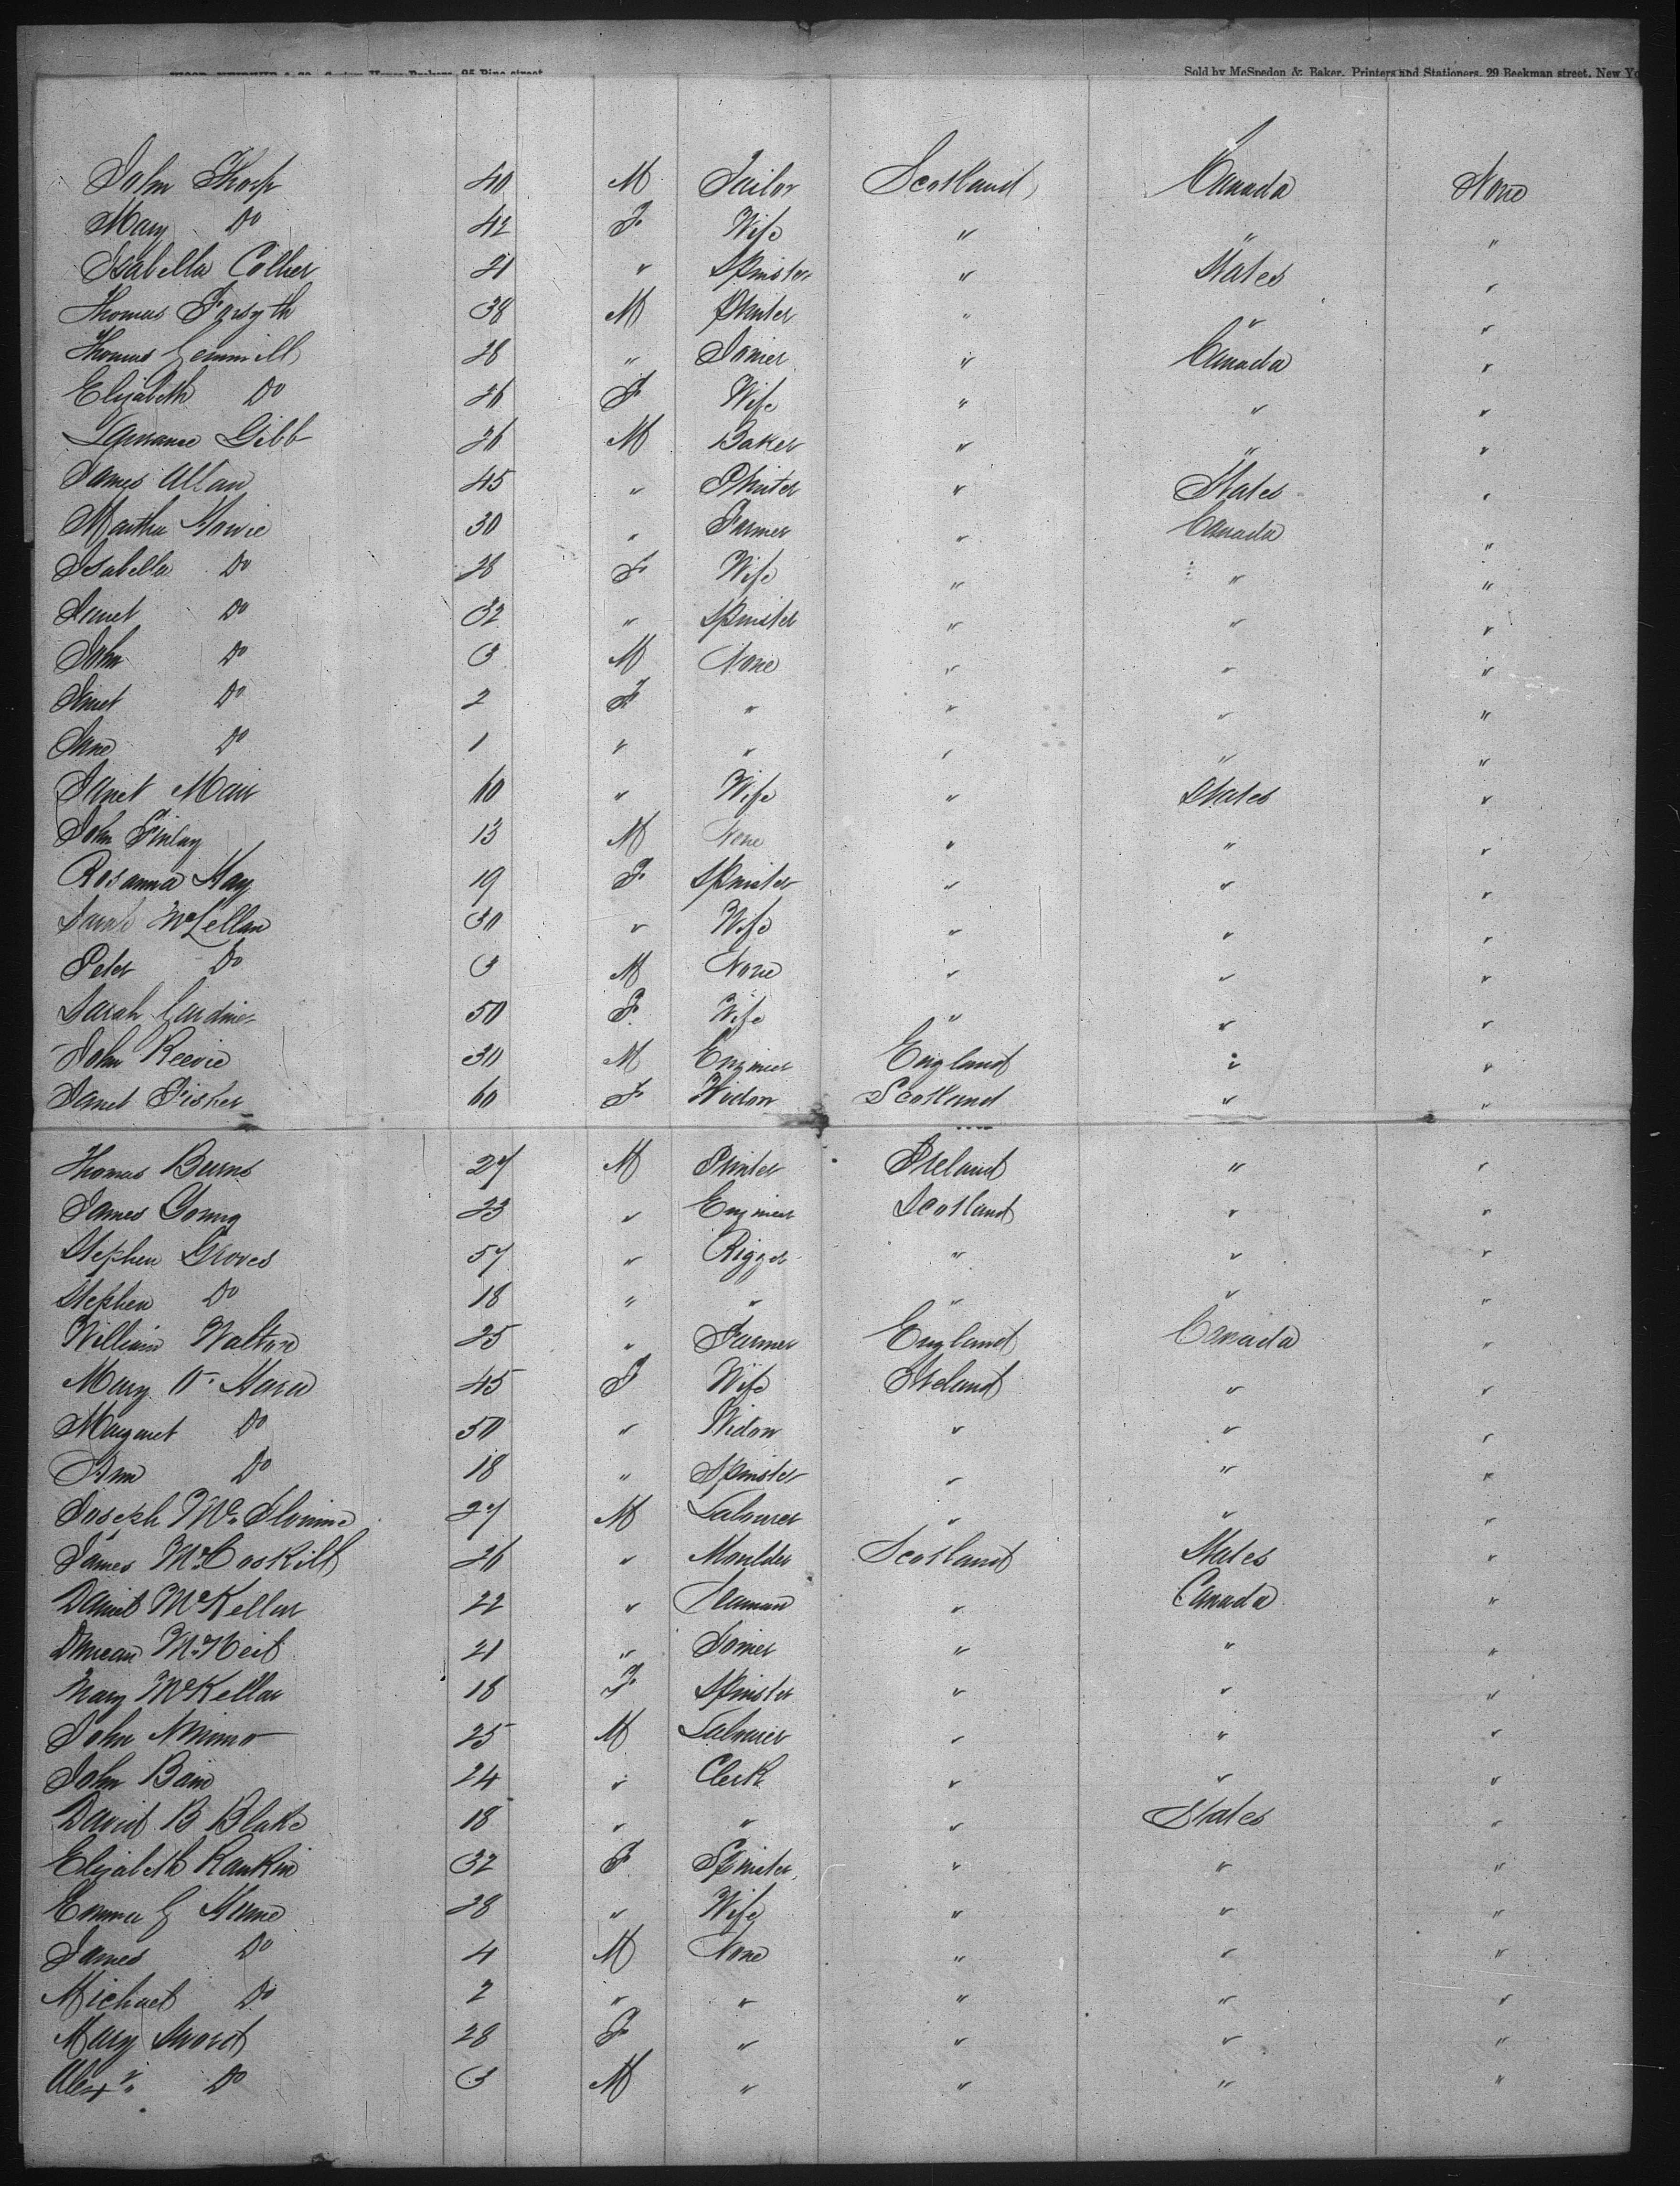 Sold by McSpedon & Baker, Printers and Stationers, 29 Beekman street, New Yo
John Thorp 40 M Tailor Scotland Canada None
Mary Do 42 F Wife " " "
Isabella Collier 21 " Spinster " States "
Thomas Forsyth 38 M Printer " " "
Thomas Gemmill 28 " Joiner " Canada "
Elizabeth Do 26 F Wife " " "
Lawrance Gibb 26 M Baker " " "
James Allan 45 " Printer " States "
Matthew Howie 30 " Farmer " Canada "
Isabella Do 28 F Wife " " "
Janet Do 32 " Spinster " " "
John Do 3 M None " " "
Janet Do 2 F " " " "
Jane Do 1 " " " " "
Janet Mair 60 " Wife " States "
John Finlay 13 M None " " "
Rosanna Hay 19 F Spinster " " "
Sarah McLellan 30 " Wife " " "
Peter Do 3 M None " " "
Sarah Gardiner 50 F Wife " " "
John Reevie 30 M Engineer England " "
Janet Fisher 60 F Widow Scotland " "
Thomas Burns 27 M Printer Ireland " "
James Young 23 " Engineer Scotland " "
Stephen Groves 57 " Rigger " " "
Stephen Do 18 " " " " "
William Walton 25 " Farmer England Canada "
Mary O'Hara 45 F Wife Ireland " "
Margaret Do 50 " Widow " " "
Ann Do 18 " Spinster " " "
Joseph 27 M Labourer " " "
James McCoskill 26 " Moulder Scotland States "
Daniel McKellar 22 " Seaman " Canada "
Duncan McNeil 21 " Joiner " " "
Mary McKellar 18 F Spinster " " "
John Nimmo 25 M Labourer " " "
John Bain 24 " Clerk " " "
David B Blake 18 " " " States "
Elizabeth Rankin 32 F Spinster " " "
Emma G Hume 28 " Wife " " "
James Do 4 M None " " "
Michael Do 2 " " " " "
Mary Sword 28 F " " " "
Alexr Do 3 M " " " "